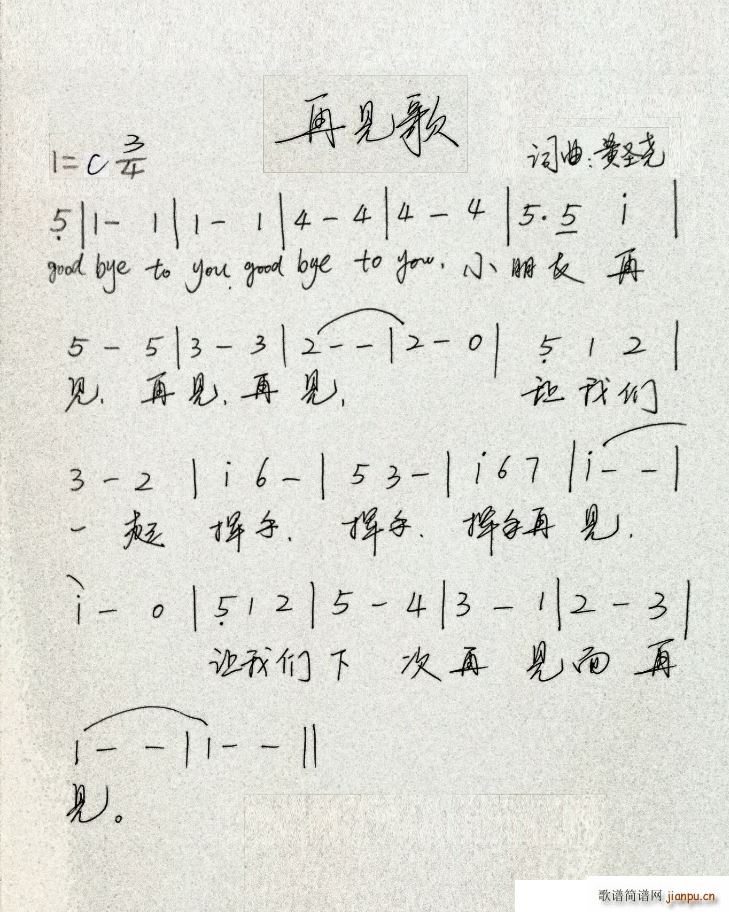 再见歌
1=C 3/4
词曲:黄圣尧
5̣ | 1 - 1 | 1 - 1 | 4 - 4 | 4 - 4 | 5 · 5̲ i̇ |
good bye to you. good bye to you. 小朋友 再
5 - 5 | 3 - 3 | 2 - - | 2 - 0 | 5̣ 1 2 |
见. 再见. 再见. 让我们
3 - 2 | i̇ 6 - | 5 3 - | i̇ 6 7 | i̇ - - |
一起 挥手. 挥手. 挥手再见.
i̇ - 0 | 5̣ 1 2 | 5 - 4 | 3 - 1 | 2 - 3 |
让我们下次再见面再
1 - - | 1 - - ||
见。
歌谱简谱网 jianpu.cn